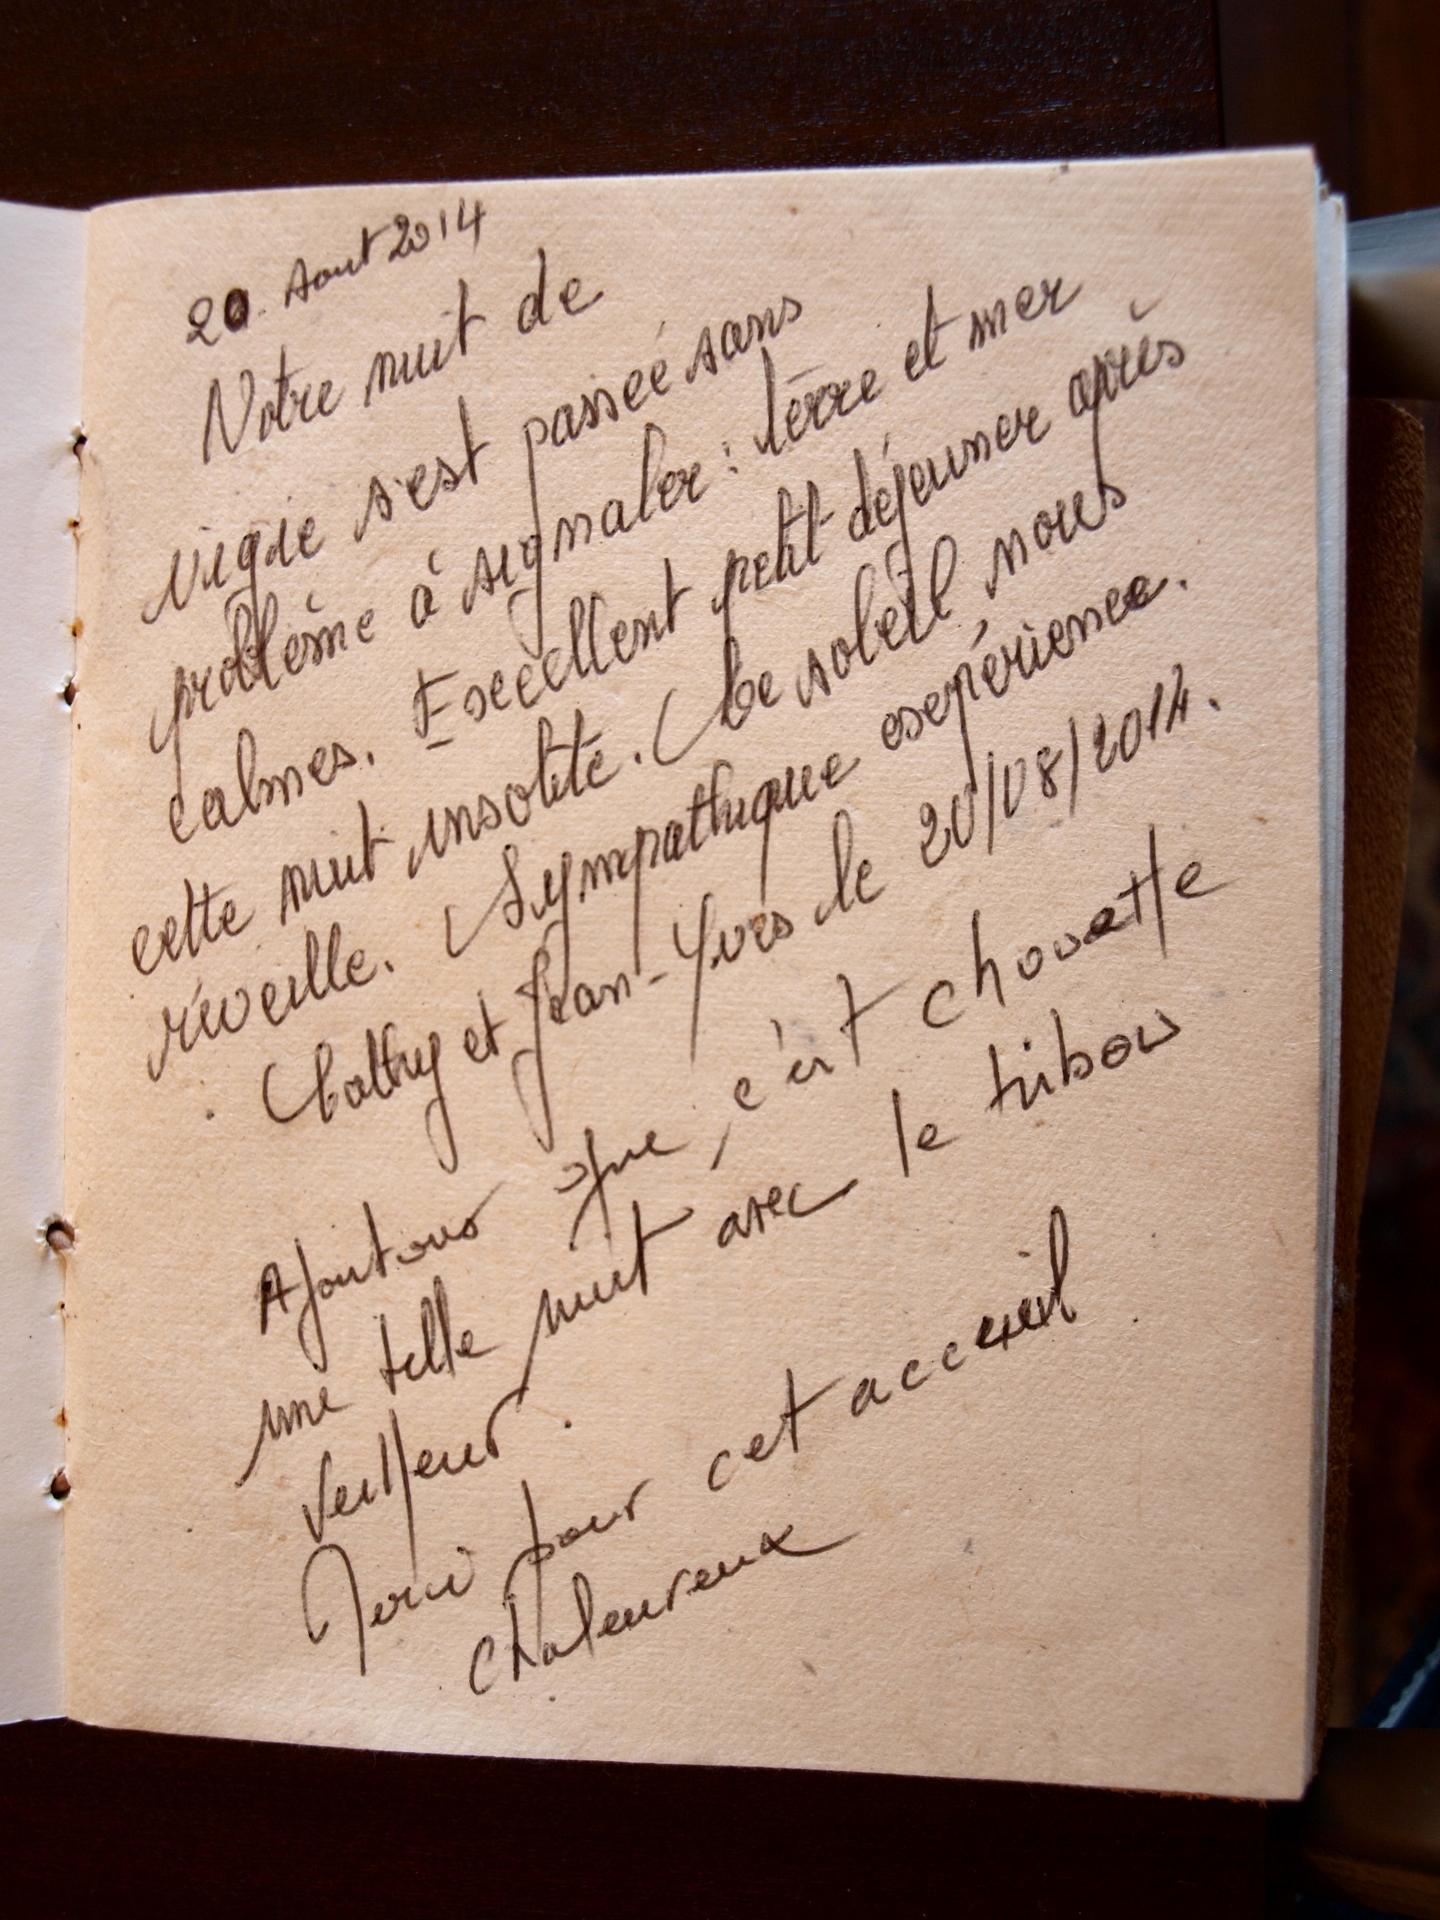 20. Aout 2014
Notre nuit de
vigie s'est passée sans
problème à signaler : terre et mer
calmes. Excellent petit déjeuner après
cette nuit insolite. Le soleil nous
réveille. Sympathique expérience.
Cathy et Jean-Yves le 20/08/2014.
Ajoutons que, c'est chouette
une telle nuit avec le hibou
veilleur.
Merci pour cet accueil
chaleureux